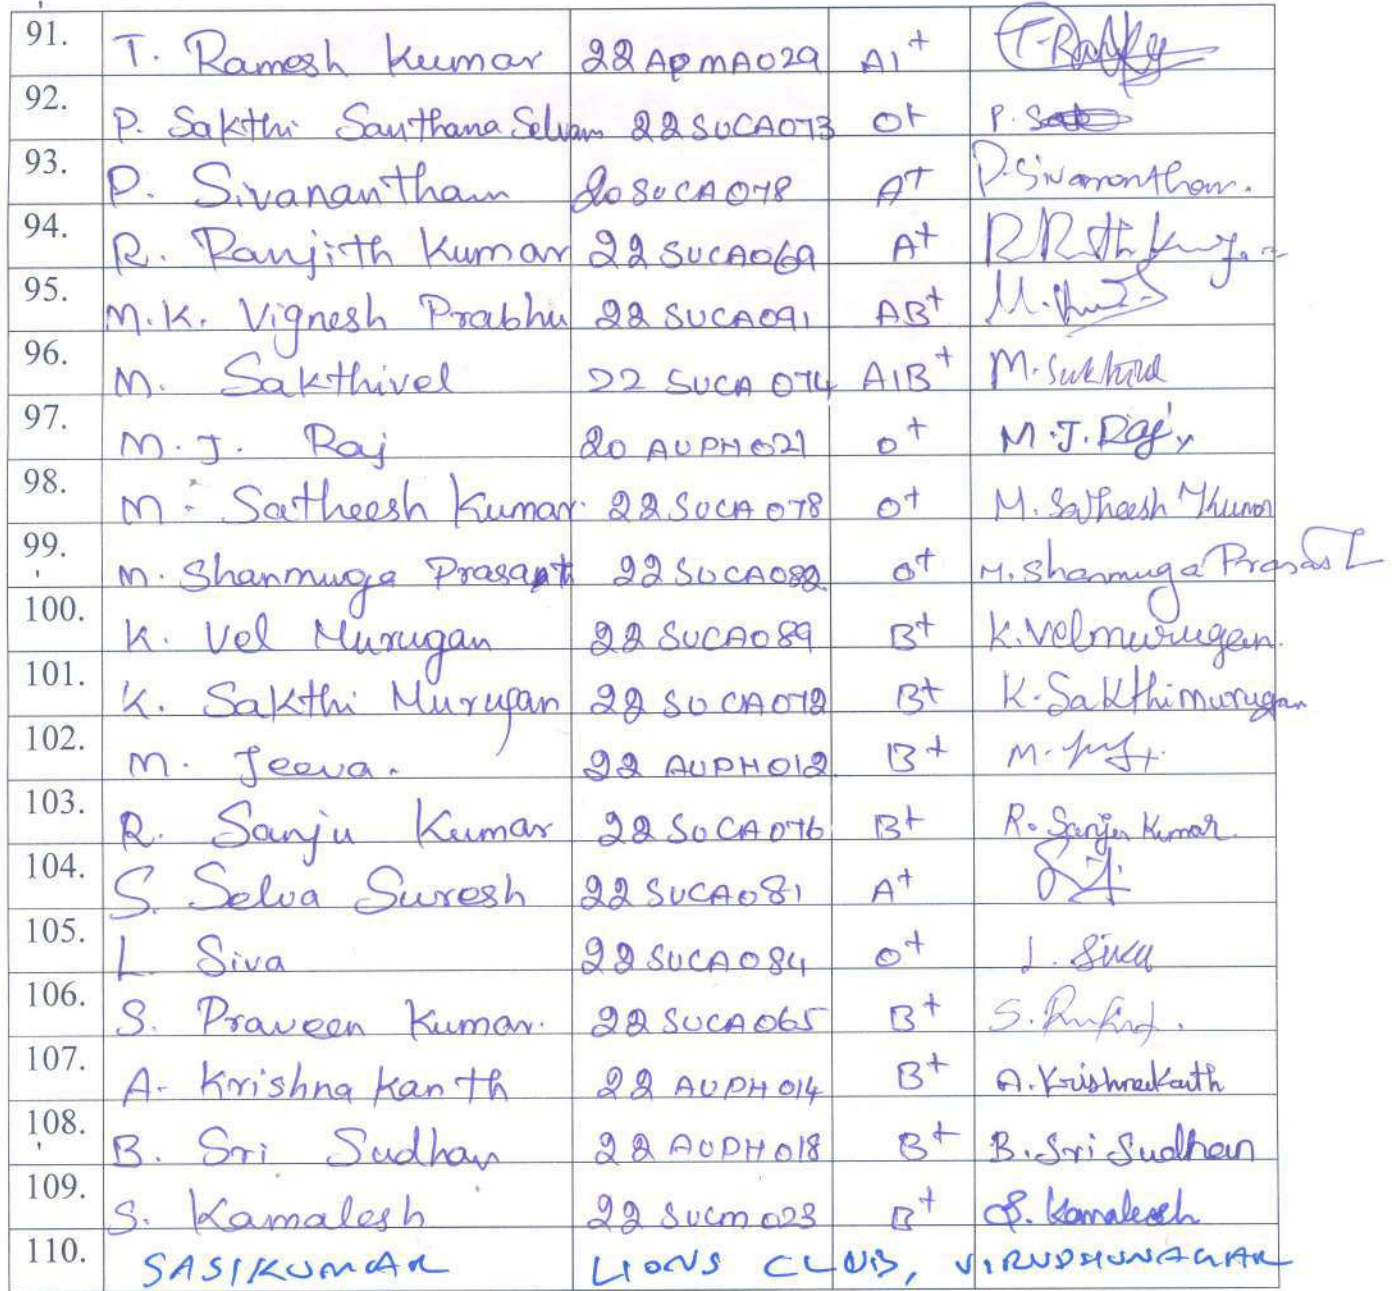 91. T. Ramesh Kumar 22APMA029 A1+ T. Ramky
92. P. Sakthi Santhana Selvam 22SUCA073 O+ P.
93. P. Sivanantham 20SUCA078 A+ P. Sivanantham.
94. R. Ranjith Kumar 22SUCA069 A+
95. M.K. Vignesh Prabhu 22SUCA091 AB+ M.
96. M. Sakthivel 22 SUCA 074 A1B+ M. Sakthivel
97. M.J. Raj 20 AUPH021 O+ M.J. Raj
98. M. Satheesh Kumar. 22SUCA078 O+ M. Satheesh Kumar
99. M. Shanmuga Prasant 22SUCA082 O+ M. Shanmuga Prasast
100. K. Vel Murugan 22SUCA089 B+ K. Velmurugan.
101. K. Sakthi Murugan 22SUCA072 B+ K. Sakthimurugan
102. M. Jeeva. 22 AUPH012 B+ M.
103. R. Sanju Kumar 22SUCA076 B+ R. Sanju Kumar.
104. S. Selva Suresh 22SUCA081 A+
105. L Siva 22SUCA084 O+ L. Siva
106. S. Praveen Kumar. 22SUCA065 B+ S.
107. A. Krishna Kanth 22 AUPH 014 B+ A. Krishnakanth
108. B. Sri Sudhan 22AUPH018 B+ B. Sri Sudhan
109. S. Kamalesh 22 SUCM 023 B+ S. Kamalesh
110. SASIKUMAR LIONS CLUB, VIRUDHUNAGAR